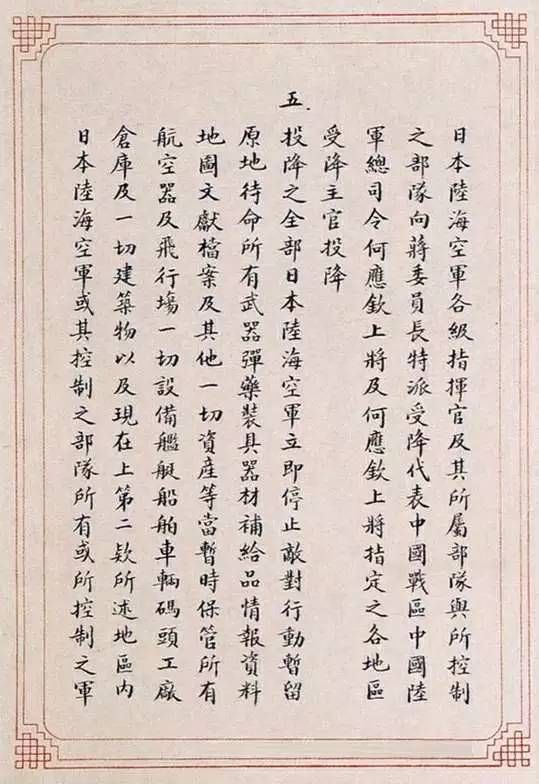 日本陸海空軍各級指揮官及其所屬部隊與所控制
之部隊向蔣委員長特派受降代表中國戰區中國陸
軍總司令何應欽上將及何應欽上將指定之各地區
受降主官投降
五.投降之全部日本陸海空軍立即停止敵對行動暫留
原地待命所有武器彈藥裝具器材補給品情報資料
地圖文獻檔案及其他一切資產等當暫時保管所有
航空器及飛行場一切設備艦艇船舶車輛碼頭工廠
倉庫及一切建築物以及現在上第二欵所述地區內
日本陸海空軍或其控制之部隊所有或所控制之軍